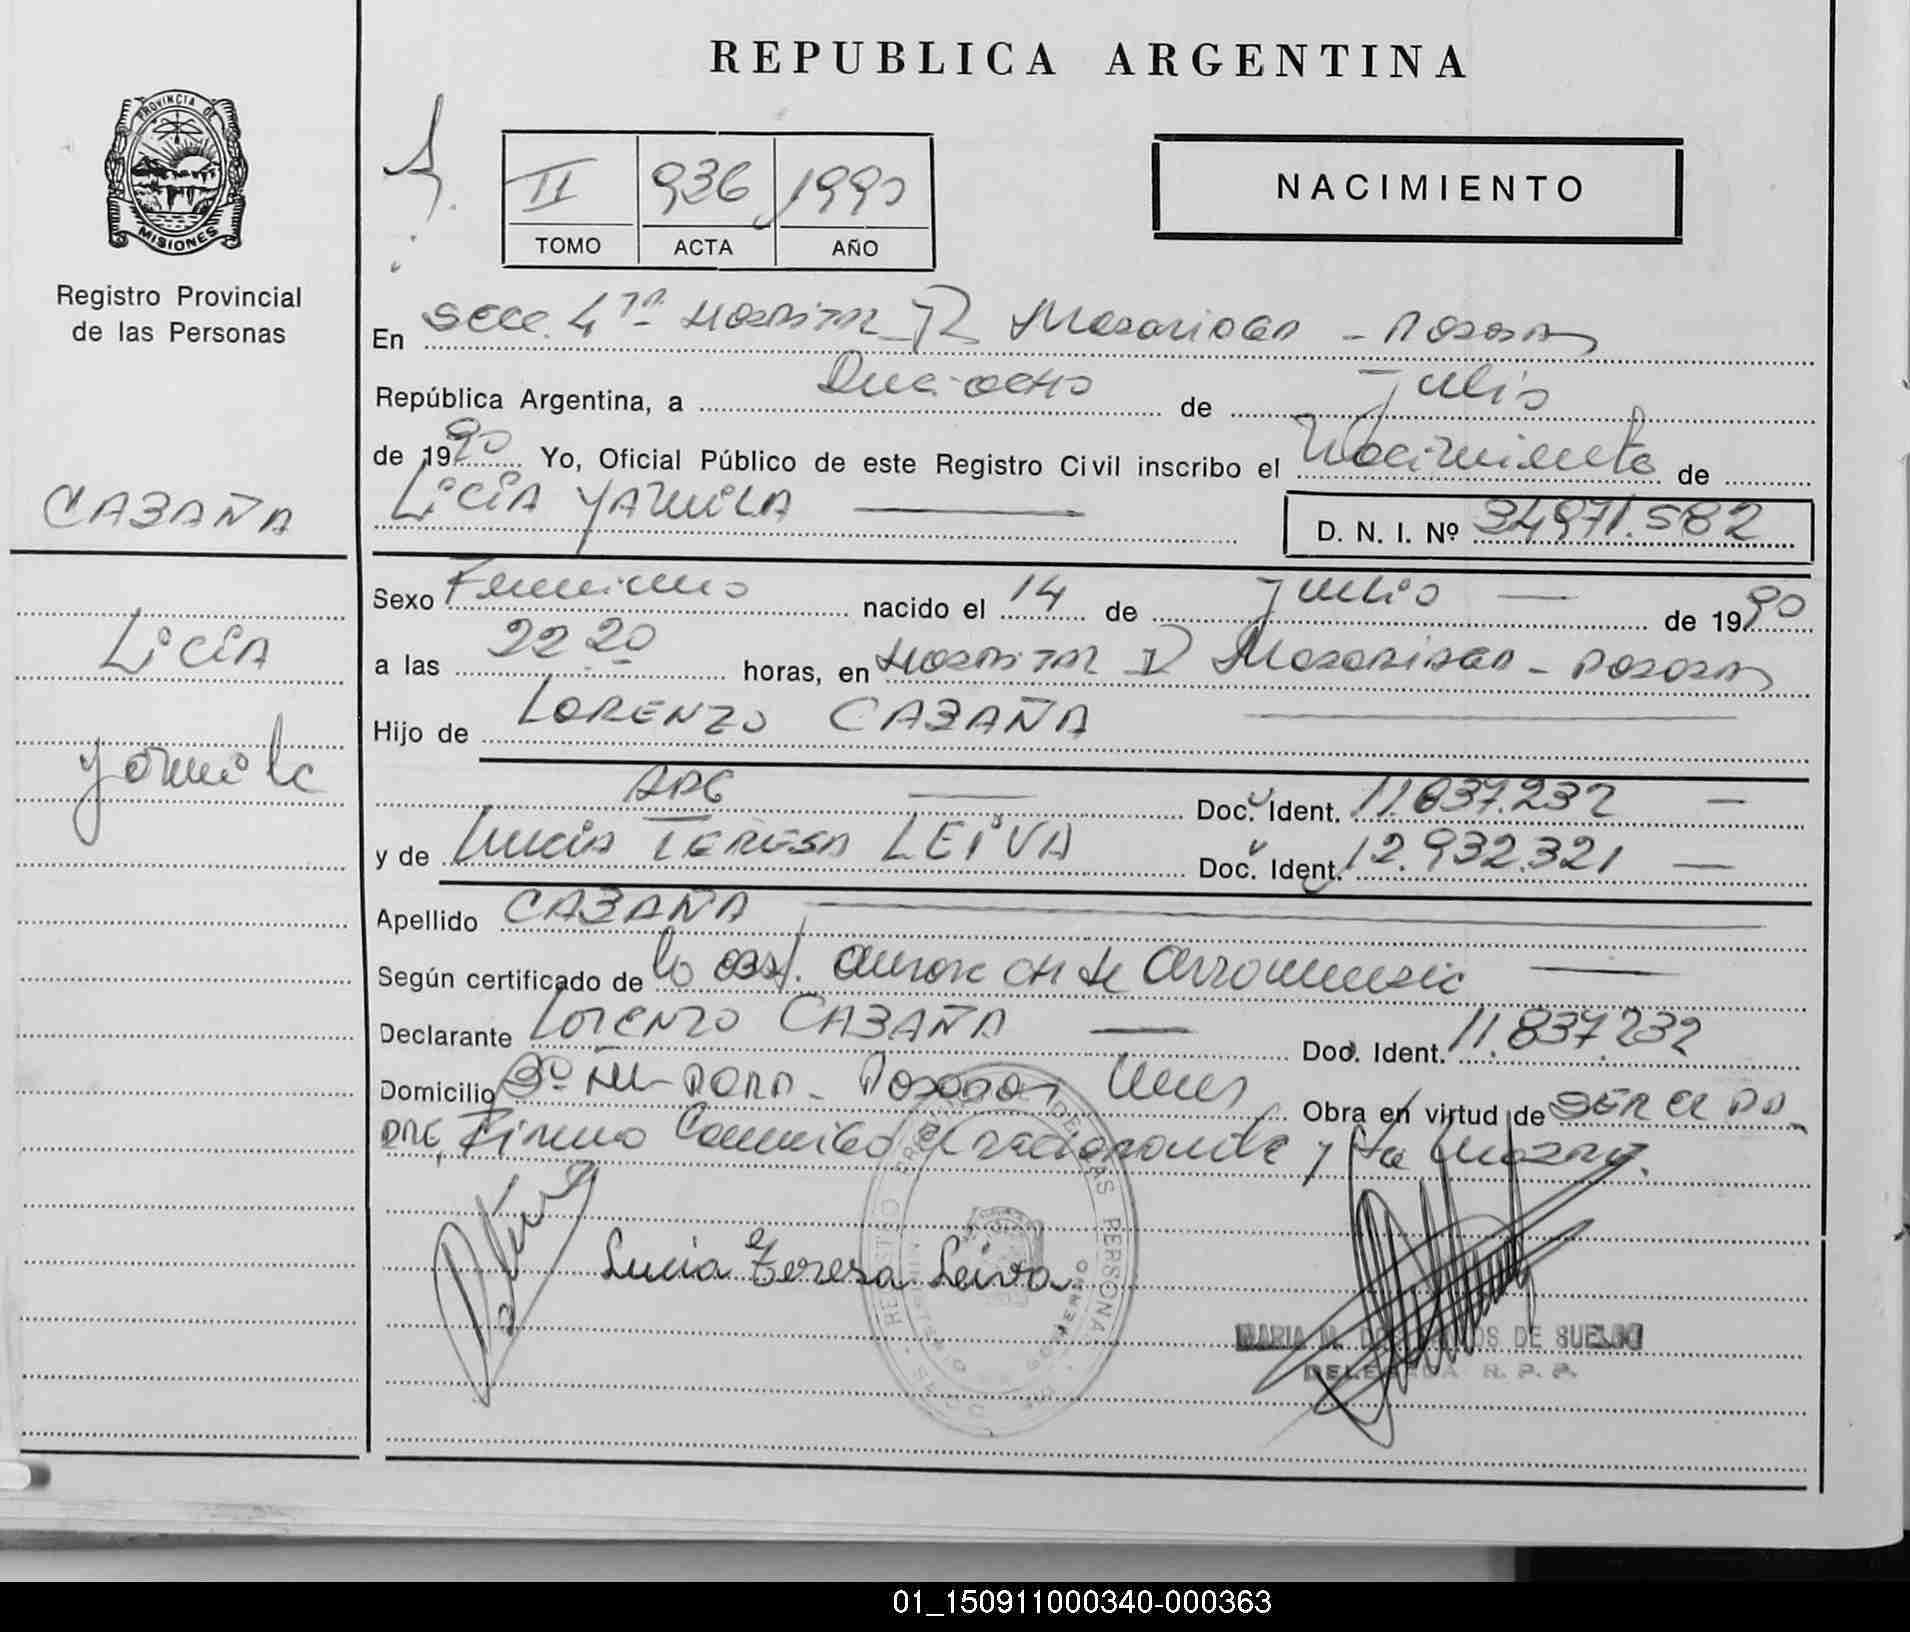 REPUBLICA ARGENTINA
PROVINCIA DE MISIONES
Registro Provincial
de las Personas
II 936 1990
TOMO ACTA AÑO
NACIMIENTO
En Secc. 4ta Hospital Posadas
República Argentina, a Dieciocho de Julio
de 1990 Yo, Oficial Público de este Registro Civil inscribo el Nacimiento de
CABAÑA
LICIA YAMILA
D. N. I. Nº 34971.582
Sexo Femenino nacido el 14 de Julio de 1990
Licia
a las 22 20 horas, en Hospital Posadas
Hijo de LORENZO CABAÑA
Yamila
ARG Doc. Ident. 11.837.232
y de Lucia TERESA LEIVA Doc. Ident. 12.932.321
Apellido CABAÑA
Según certificado de la obst.
Declarante Lorenzo CABAÑA Doc. Ident. 11.837.232
Domicilio Posadas Obra en virtud de SER el PA-
DRE, Firma y la Madre.
Lucia Teresa Leiva
DE SUELDO
DELEGADA R. P. P.
01_150911000340-000363